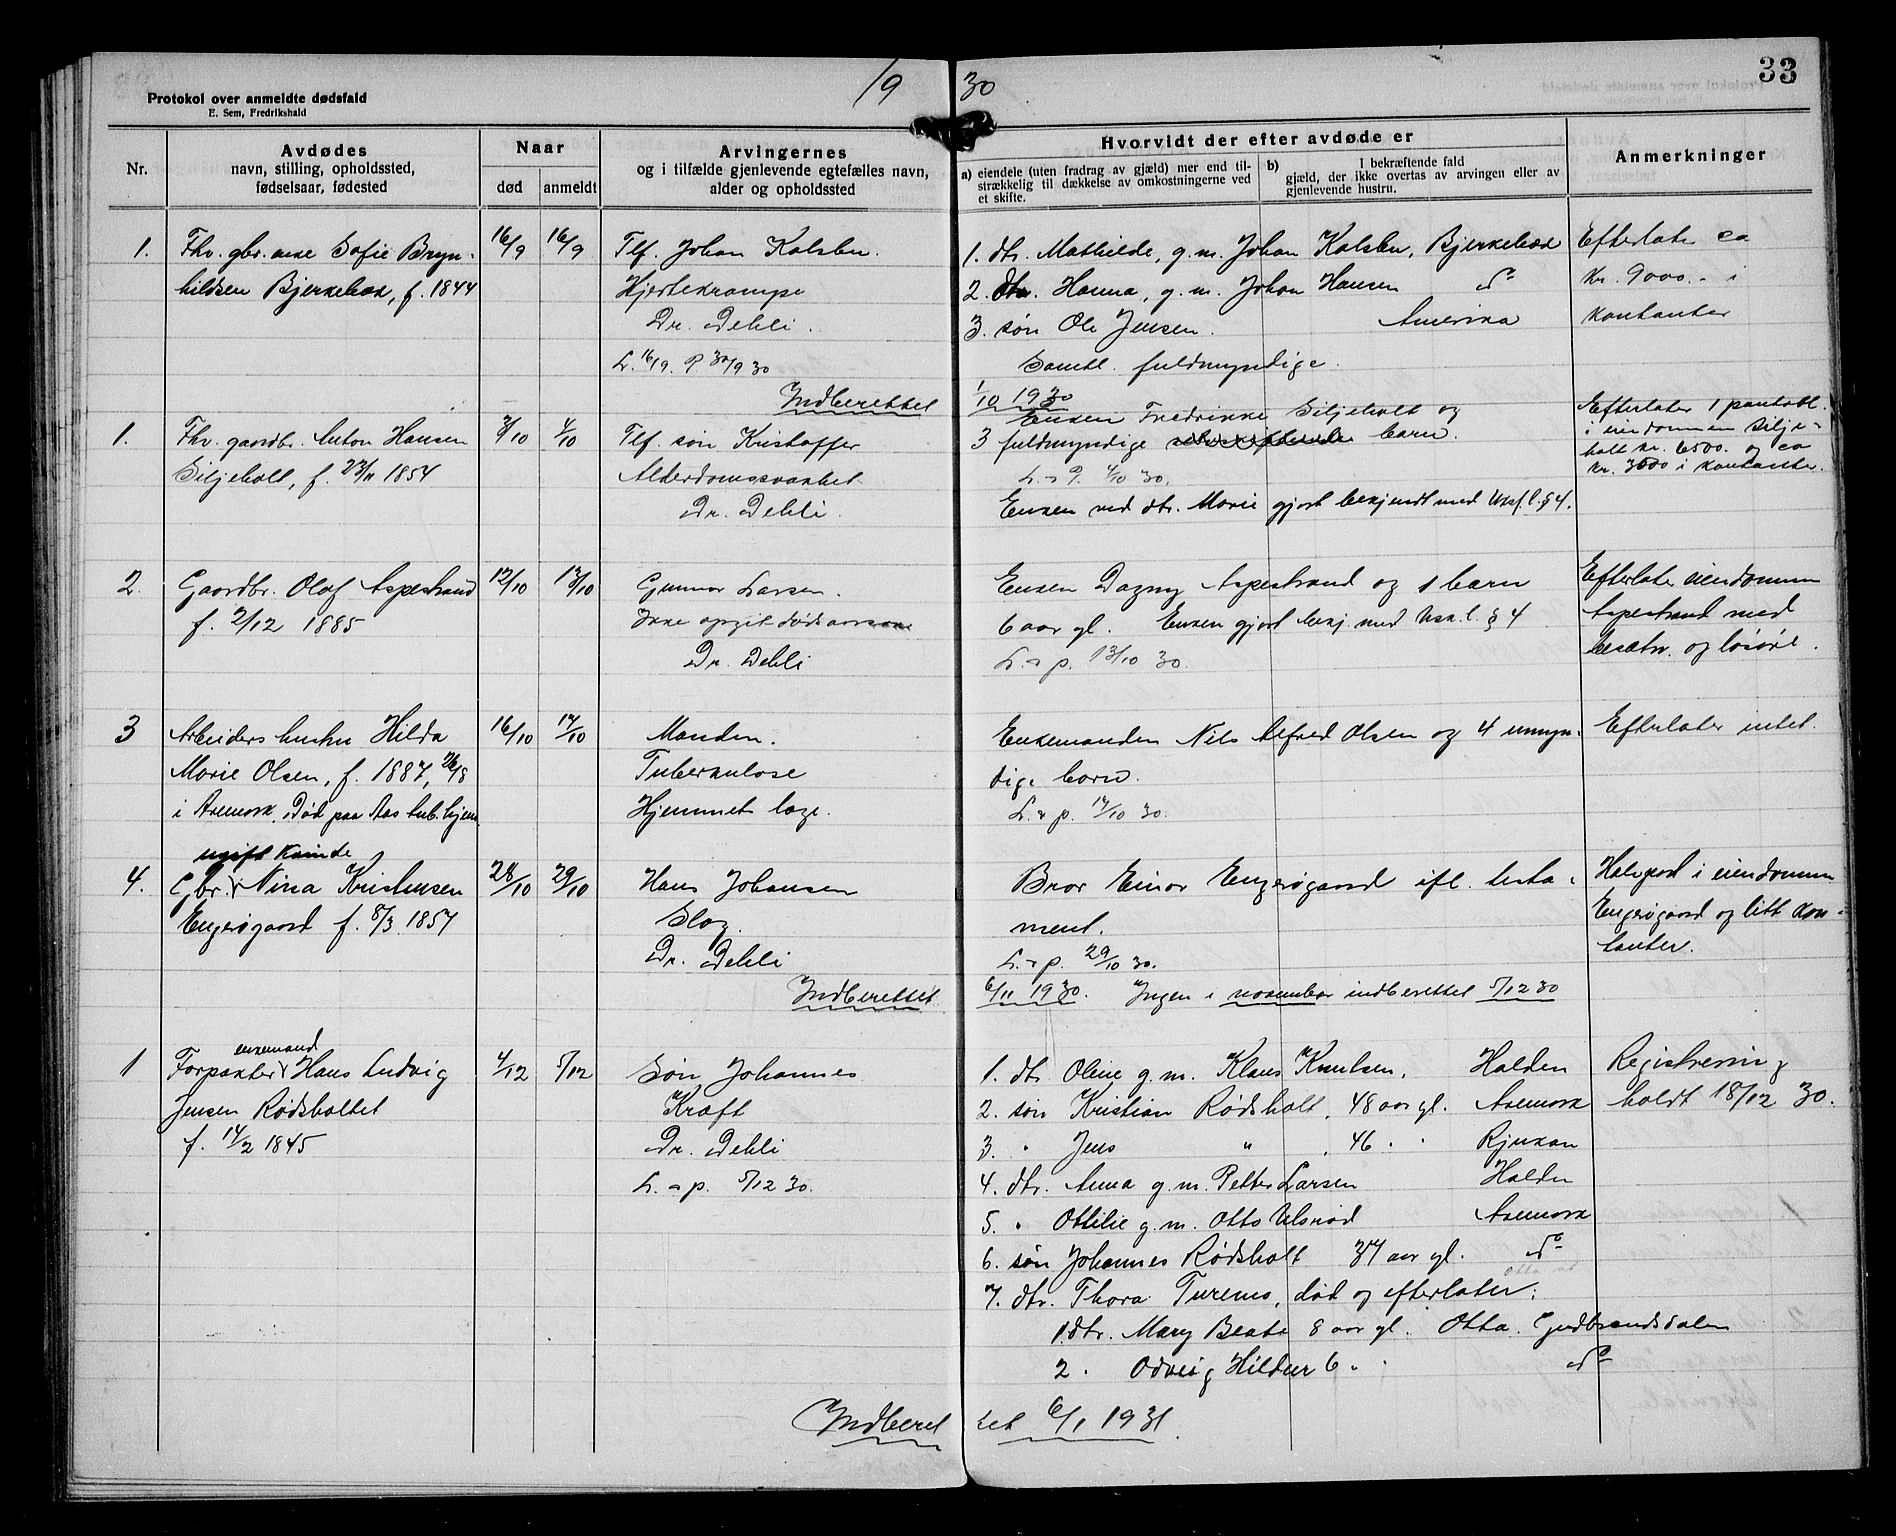 19 30
33
Protokol over anmeldte dødsfald
E. Sem, Fredrikshald
Nr.
Avdødes
navn, stilling, opholdssted,
fødselsaar, fødested
Naar
død
anmeldt
Arvingernes
og i tilfælde gjenlevende egtefælles navn,
alder og opholdssted
Hvorvidt der efter avdøde er
a) eiendele (uten fradrag av gjæld) mer end til-
strækkelig til dækkelse av omkostningerne ved
et skifte.
b) I bekræftende fald
gjæld, der ikke overtas av arvingen eller av
gjenlevende hustru.
Anmerkninger
1. Fhv. gbr. enke Sofie Bryn-
hildsen Bjerkebæk, f. 1844
16/9 16/9
Tlf. Johan Kolsbu.
Hjertekrampe
Dr. Dehli.
L. 16/9. P 30/9 30
Indberettet
1. dtr. Mathilde, g.m. Johan Kolsbu, Bjerkebæk
2. dtr. Hanna, g.m. Johan Hansen do
3. søn Ole Jensen. Amerika
Samtl. fuldmyndige.
1/10 1930
Efterlater ca
kr. 9000.- i
kontanter
1. Fhv. gaardbr. Anton Hansen
Siljeholt, f. 23/11 1854
3/10 4/10
Tlf. søn Kristoffer
Alderdomssvakhet
Dr. Dehli.
Enken Fredrikke Siljeholt og
3 fuldmyndige barn.
L. & P. 4/10 30.
Enken ved dtr. Marie gjort bekjendt med Uskf.l. § 4.
Efterlater 1 pantobl.
i eiendommen Silje-
holt kr. 6500. og ca
kr. 3000 i kontanter.
2. Gaardbr. Olaf Aspestrand
f. 2/12 1885
12/10 13/10
Gunnar Larsen.
Ikke opgit dødsaarsak
Dr. Dehli
Enken Dagny Aspestrand og 1 barn
6 aar gl. Enken gjort bekj. med Usk.l. § 4
L. & p. 13/10 30.
Efterlater eiendommen
Aspestrand med
besætn. og løsøre.
3 Arbeiders hustru Hilda
Marie Olsen, f. 1887, 26/8
i Aremark. Død paa Aas tub.hjem.
16/10 17/10
Manden.
Tuberkulose
Hjemmets læge.
Enkemanden Nils Alfred Olsen og 4 umyn-
dige barn.
L. & p. 17/10 30.
Efterlater intet.
ugift kvinde
4. Gbr. Nina Kristensen
Engerøgaard f. 8/3 1857
28/10 29/10
Hans Johansen
Slag.
Dr. Dehli
Indberettet
Bror Einar Engerøgaard ifl. testa-
ment.
L. & p. 29/10 30.
6/11 1930. Ingen i november indberettet 5/12 30
Halvpart i eiendommen
Engerøgaard og litt kon-
tanter.
enkemand
1 Forpakter Hans Ludvig
Jensen Rødsholtet
f. 14/2 1845
4/12 5/12
Søn Johannes
Kræft
Dr. Dehli
L. & p. 5/12 30.
1. dtr. Oline g.m. Klaus Knutsen, Halden
2. søn Kristian Rødsholt, 48 aar gl. Aremark
3. " Jens " , 46 " " Rjukan
4. dtr. Anna g.m. Petter Larsen Halden
5. " Ottilie g.m. Otto Ulsrød Aremark
6. søn Johannes Rødsholt 37 aar gl. do
7. dtr. Thora Turemo, død og efterlater:
1. dtr. Mary Beate 8 aar gl. Otta. Gudbrandsdalen
2 " Odveig Hildur 6 " " do
Registrering
holdt 18/12 30.
Indberet tet 6/1 1931.